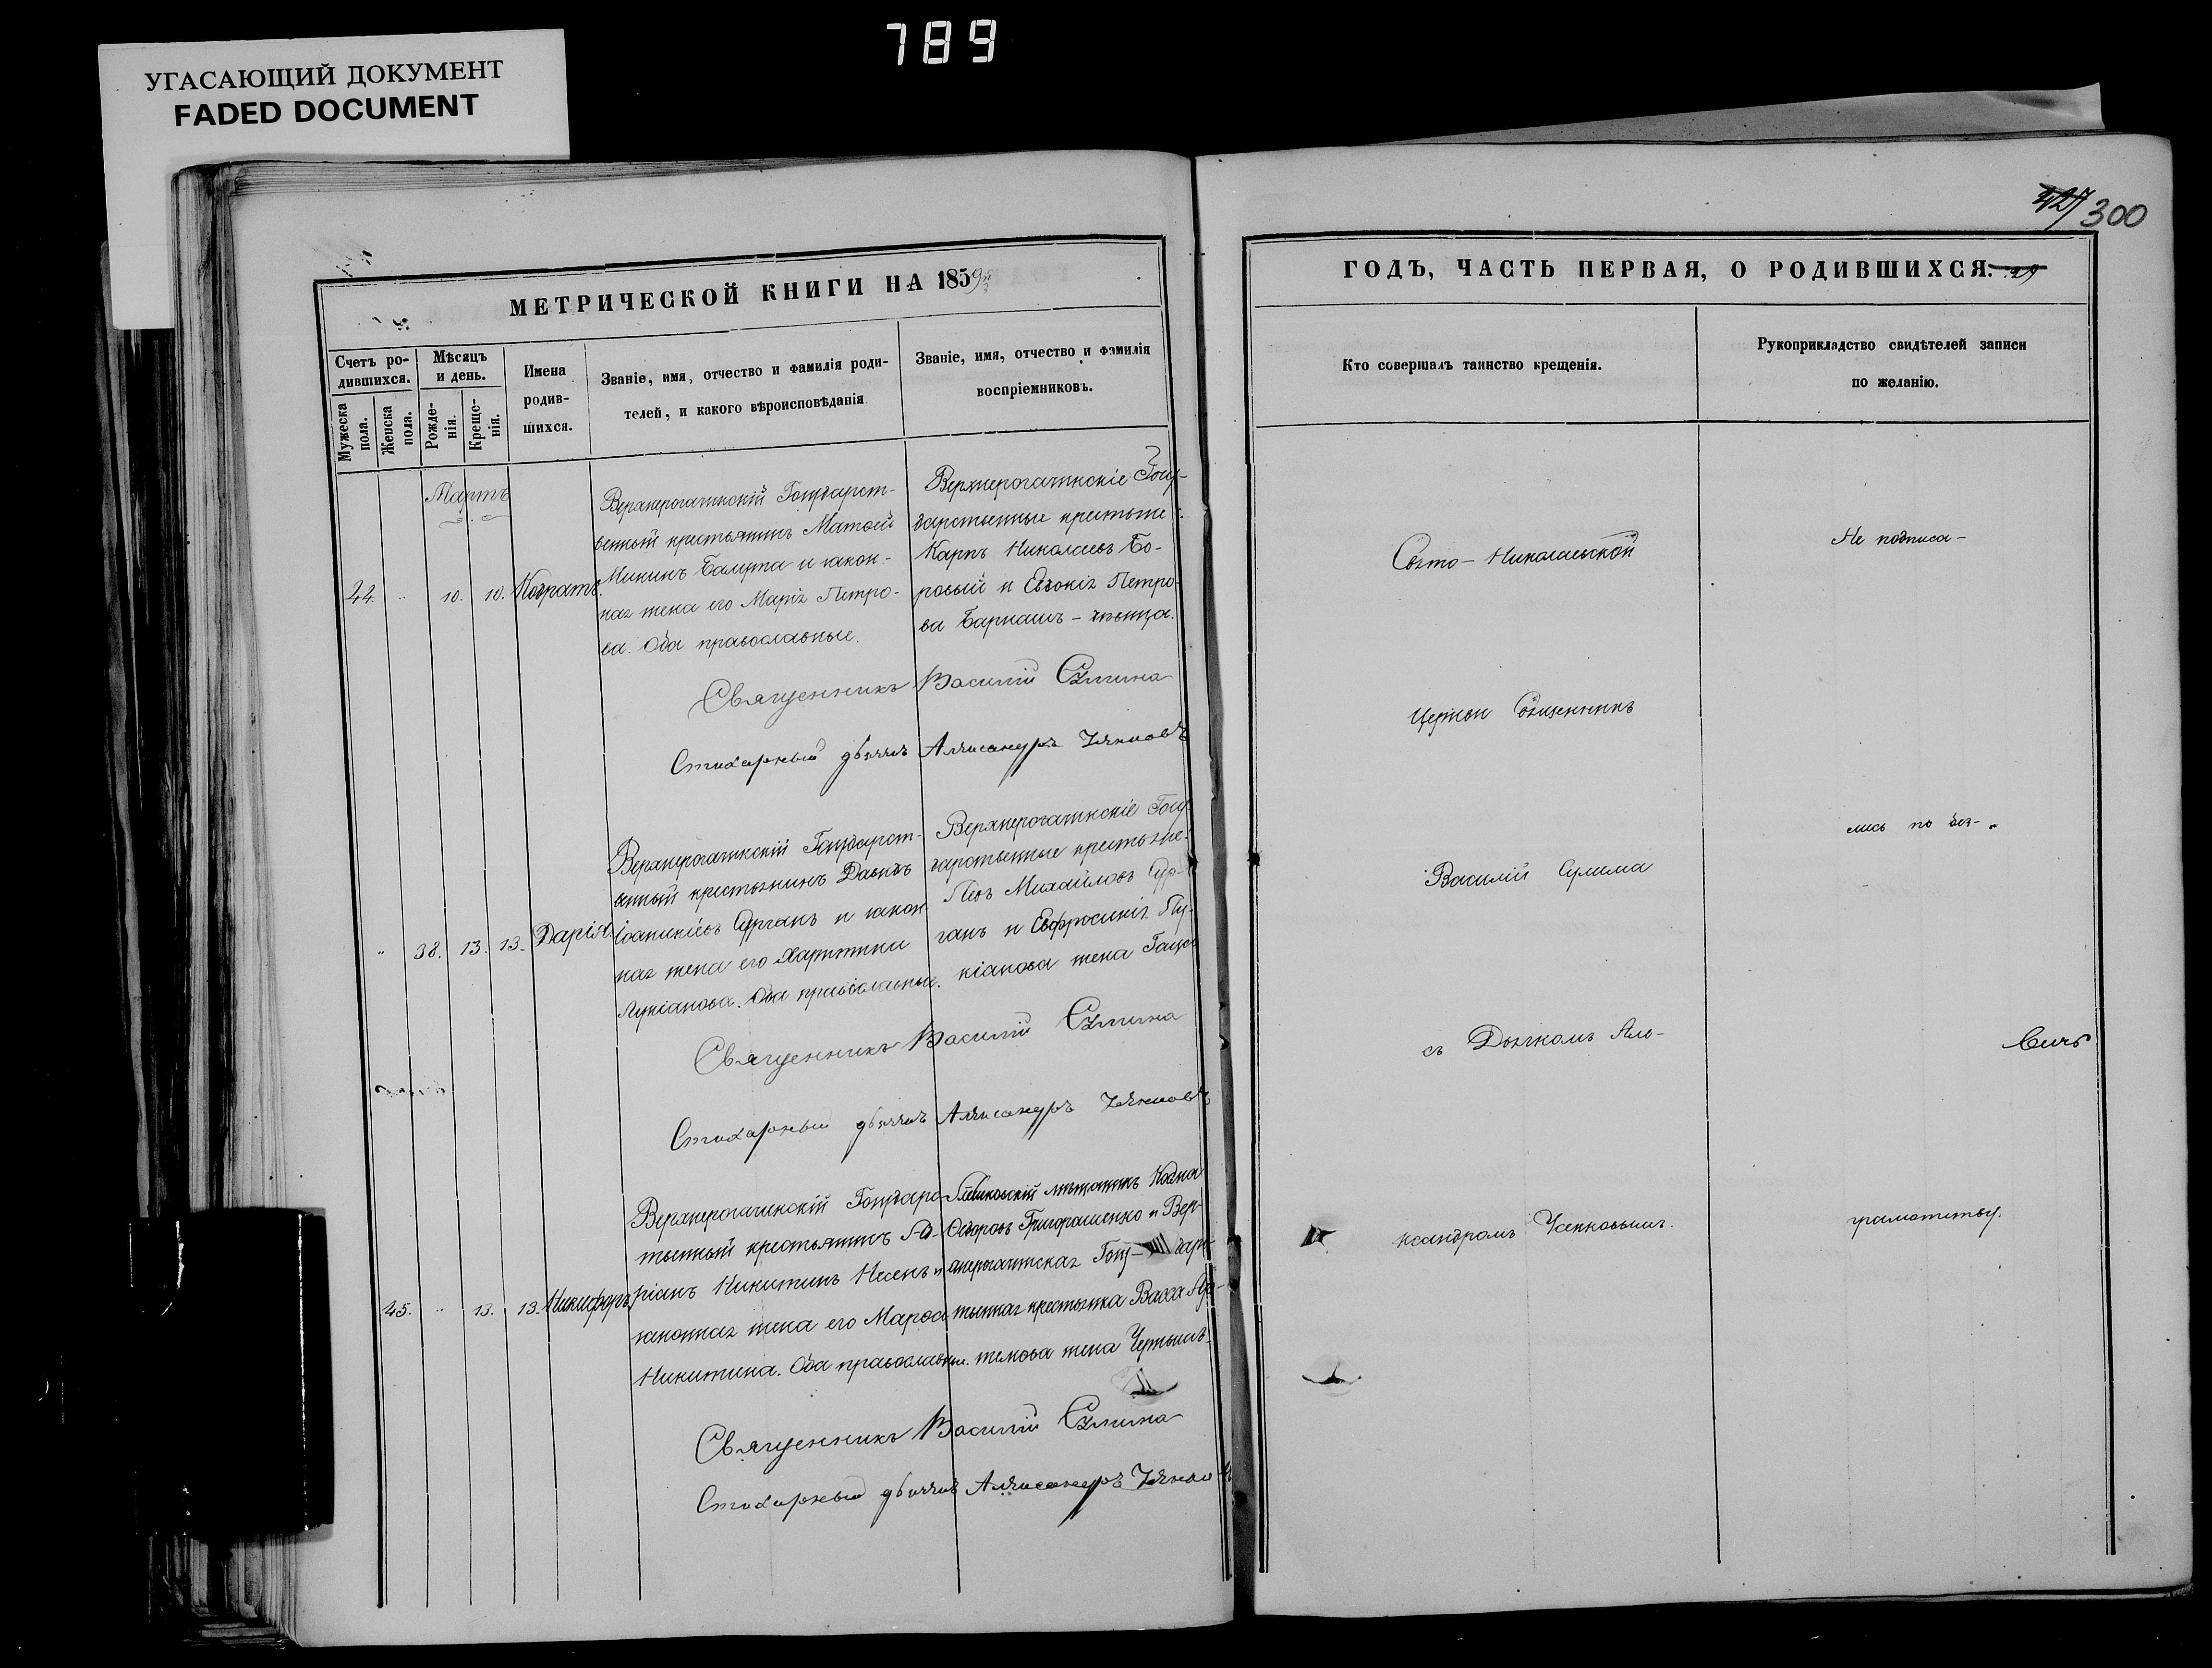 789
УГАСАЮЩИЙ ДОКУМЕНТ
FADED DOCUMENT
427 300
МЕТРИЧЕСКОЙ КНИГИ НА 1859
Счетъ ро-
дившихся.
Мужеска пола.
Женска пола.
Мѣсяцъ
и день.
Рожде-
нія.
Креще-
нія.
Имена
родив-
шихся.
Званіе, имя, отчество и фамилія роди-
телей, и какого вѣроисповѣданія
Званіе, имя, отчество и фамилія
воспріемниковъ.
Мартъ
44. " 10. 10. Кодратъ.
Верхнерогачикскій Государст-
венный крестьянинъ Матѳей
Микинъ Балута и закон-
ная жена его Марія Петро-
ва. Оба православные.
Верхнерогачикскіе Госу-
дарственные крестьяне:
Карпъ Николаевъ Бо-
ровый и Евдокія Петро-
ва Барнашъ -
Священникъ Василій Сулима
Стихарный дьячекъ Александръ
" 38. 13. 13. Дарія.
Верхнерогачикскій Государст-
венный крестьянинъ Давидъ
Іоанникіевъ Сурганъ и закон
ная жена его Харитина
Лукіанова. Оба православные.
Верхнерогачикскіе Госу
дарственные крестьяне:
Левъ Михайловъ Сур-
ганъ и Евфросинія Лу-
кіанова жена
Священникъ Василій Сулима
Стихарный дьячекъ Александръ
45. " 13. 13. Никифоръ
Верхнерогачикскій Государс
твенный крестьянинъ Ад-
ріанъ Никитинъ Несенъ и
законная жена его Марѳа
Никитина. Оба православные.
мѣщанинъ
Ѳедоровъ Григорашенко и Вер-
хнерогачикская Госу- дарс-
твенная крестьянка Васса Ар-
темова жена Чернышъ.
Священникъ Василій Сулима
Стихарный дьячекъ Александръ
ГОДЪ, ЧАСТЬ ПЕРВАЯ, О РОДИВШИХСЯ.
Кто совершалъ таинство крещенія.
Рукоприкладство свидѣтелей записи
по желанію.
Свято-Николаевской
Церкви Священникъ
Василій Сулима
съ Дьячкомъ Але-
ксандромъ
Не подписа-
лись по без-
грамотству.